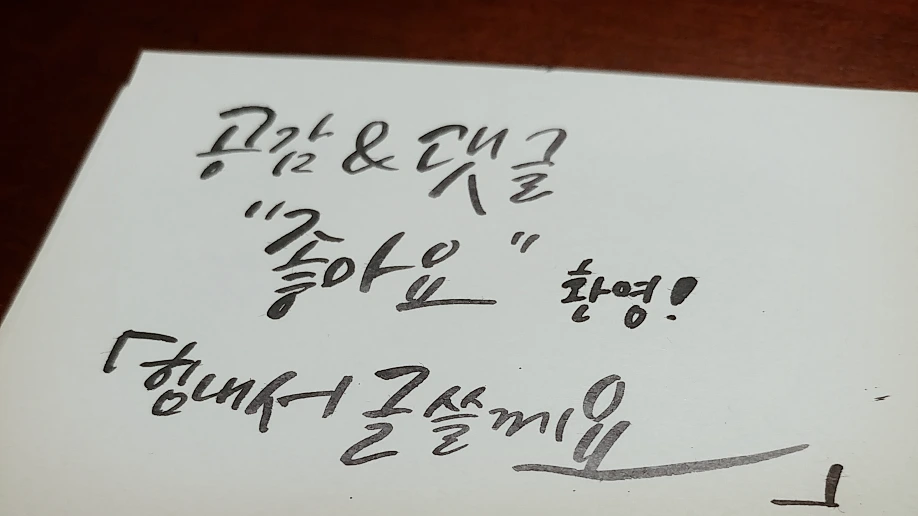 공감 & 댓글
"좋아요" 환영!
「힘내서 글 쓸께요」